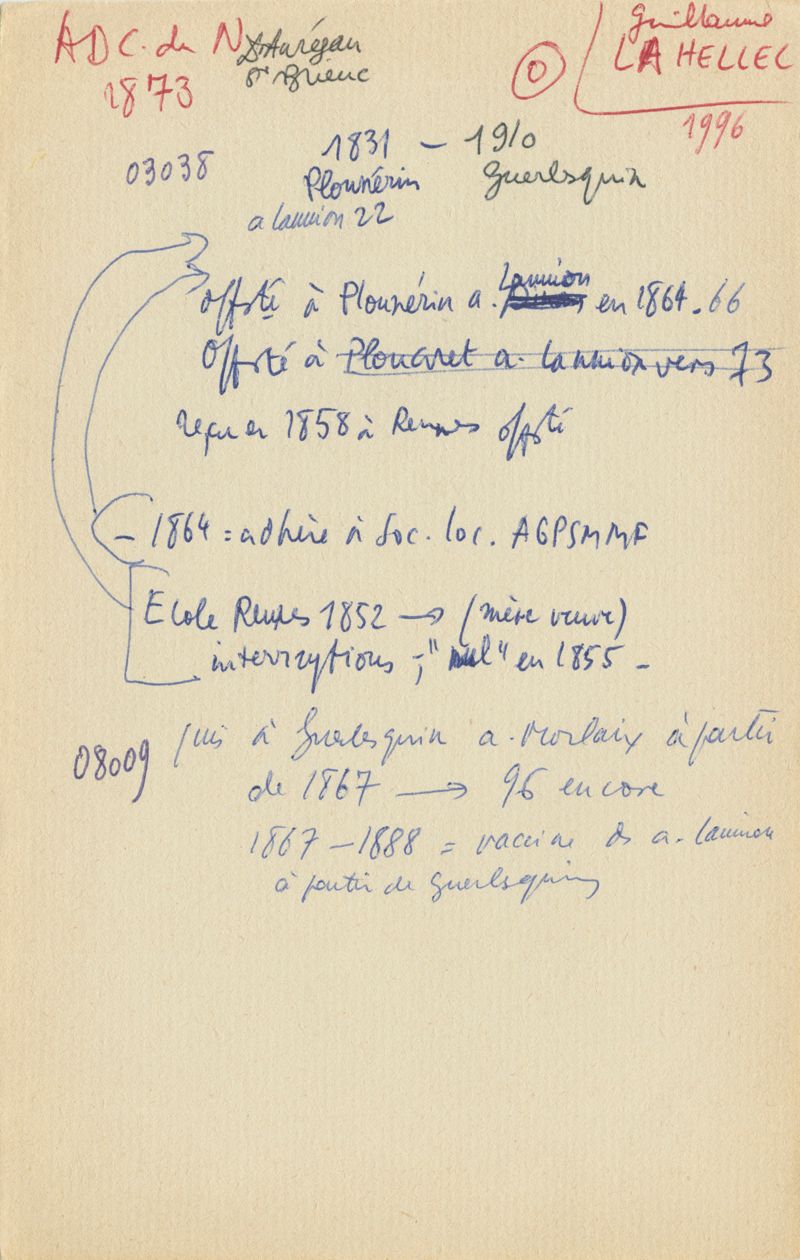 ADC. du N
1873
Dr Aurégan
St Brieuc
O
Guillaume
LA HELLEC
1996
03038
1831 – 1910
Plounérin Guerlesquin
a lannion 22
offsté à Plounérin a. Lannion en 1864-66
Offsté à Plouaret a. lannion vers 73
reçu en 1858 à Rennes offsté
– 1864 = adhère à Soc. loc. AGPSMMF
Ecole Rennes 1852 → (mère veuve)
interruptions –; "nul" en 1855 –
08009
puis à Guerlesquin a. Morlaix à partir
de 1867 → 96 encore
1867 – 1888 = vaccine ds a. lannion
à partir de Guerlesquin